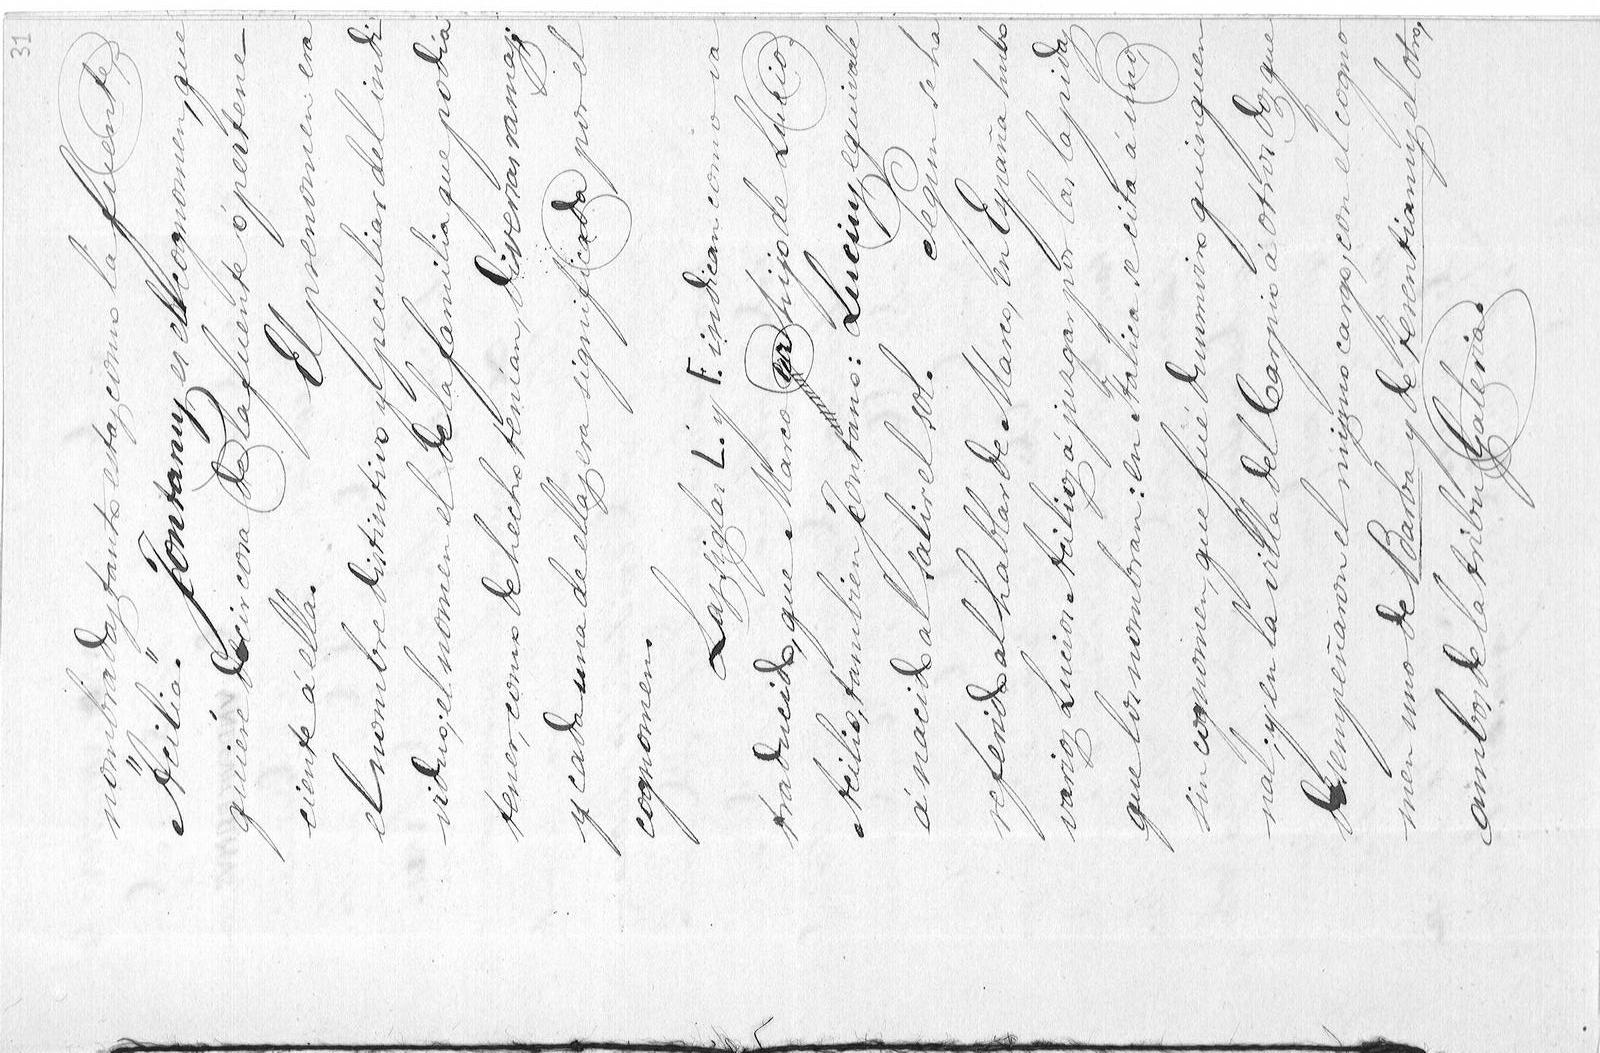 31
nombradas tanto esta, como la fuente,
"Acilia." Fontanus es el cognomen, que
quiere decir cosa de la fuente ó pertene-
ciente á ella. El prenomen era
el nombre distintivo y peculiar del indi-
viduo; el nomen el de la familia que podia
tener, como de hecho tenian, diversas ramas;
y cada una de ellas era significada por el
cognomen.
Las siglas L. y F. indican como va
traducido, que Marco es hijo de Lucio.
Acilio, tambien contano: Lucius equivale
á nacido al salir el sol. Segun se ha
referido al hablar de Marco, en España hubo
varios Lucios Acilios á juzgar por las lapidas
que los nombran: en Itálica se cita á uno,
sin cognomen, que fué duumviro quinquen
nal; y en la villa del Carpio á otros dos que
desempeñaron el mismo cargo, con el cogno
men uno de Barba y de Terentianus el otro,
ambos de la tribu Galeria.